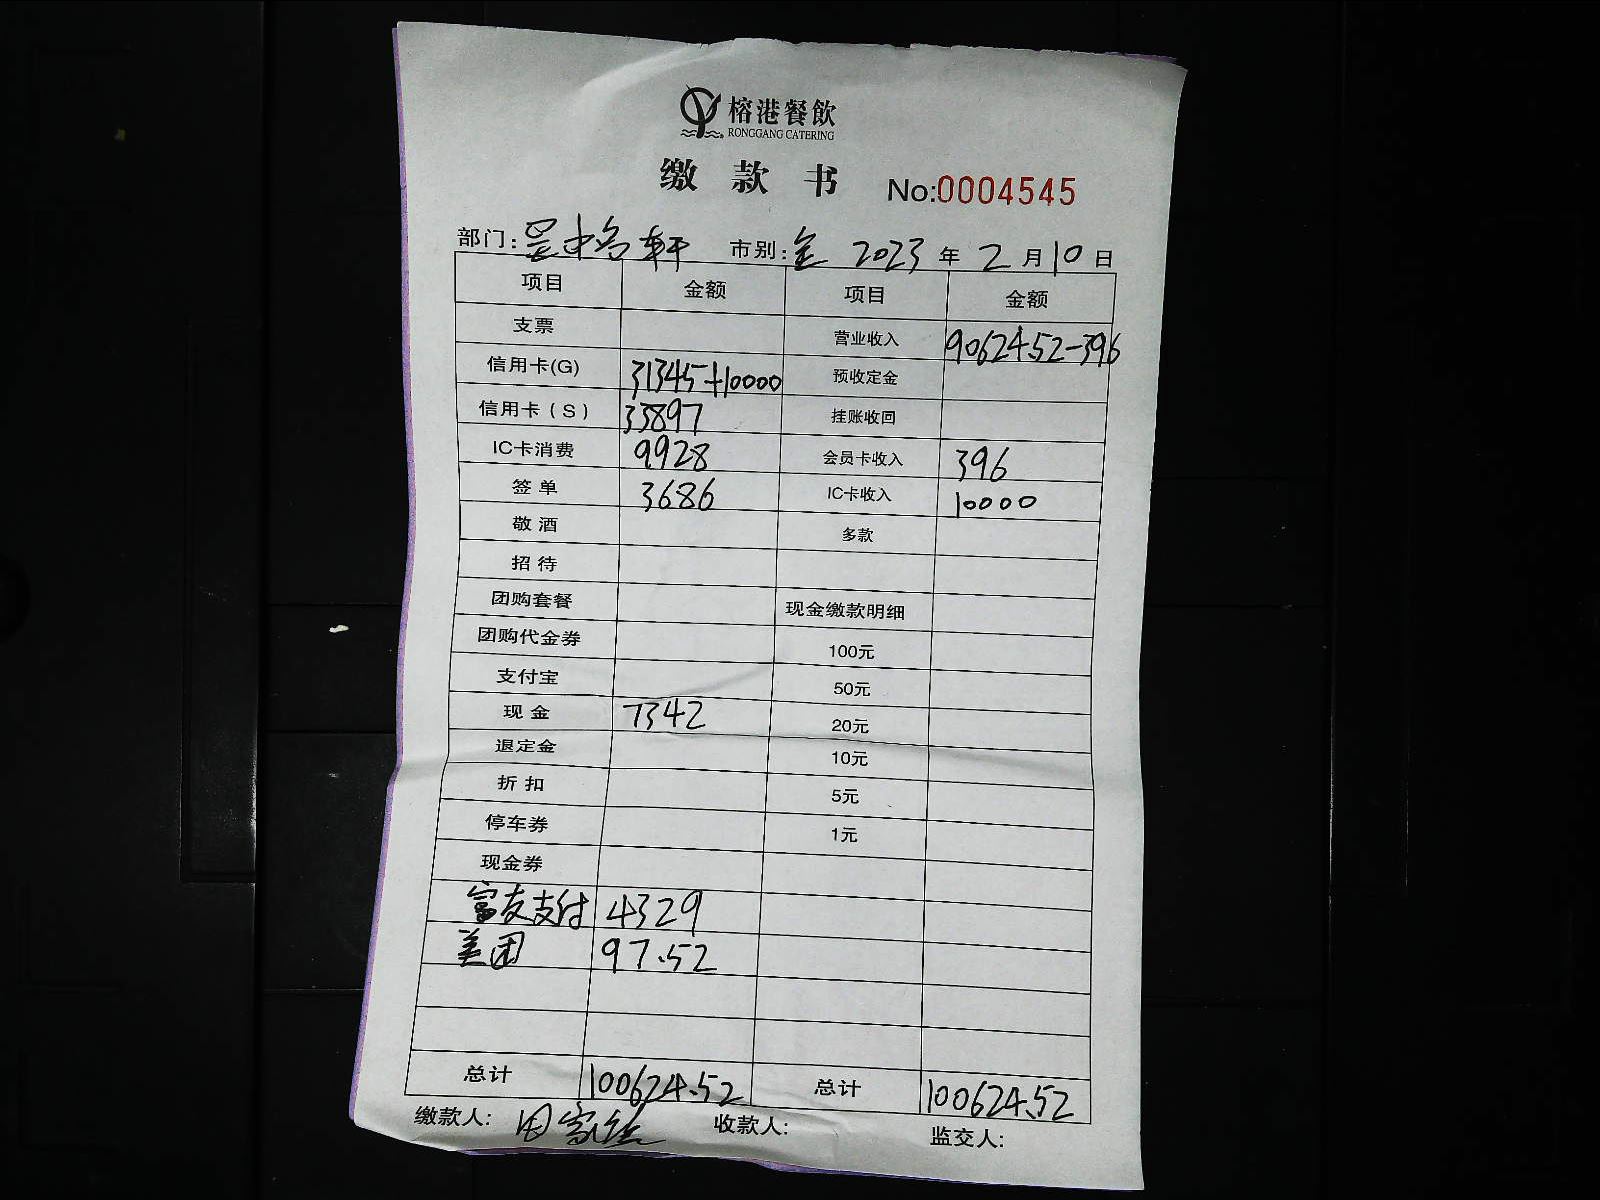 榕港餐飲
RONGGANG CATERING
缴款书 No:0004545
部门: 轩 市别:全 2023年2月10日
项目 金额 项目 金额
支票 营业收入 90624.52-396
信用卡(G) 31345+10000 预收定金
信用卡(S) 33897 挂账收回
IC卡消费 9928 会员卡收入 396
签单 3686 IC卡收入 10000
敬酒 多款
招待
团购套餐 现金缴款明细
团购代金券 100元
支付宝 50元
现金 7342 20元
退定金 10元
折扣 5元
停车券 1元
现金券
富友支付 4329
美团 97.52
总计 100624.52 总计 100624.52
缴款人: 田家 收款人: 监交人: